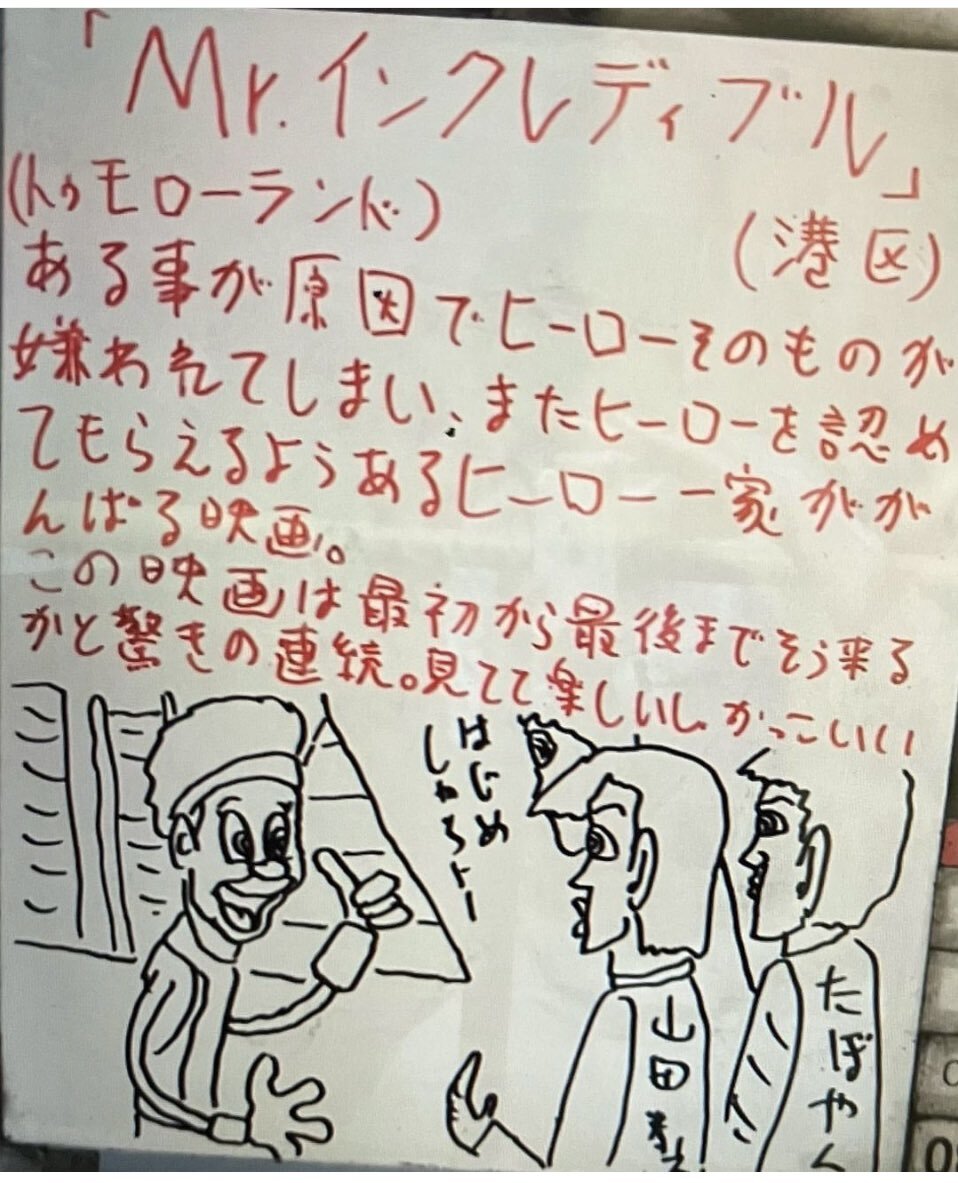 「Mr.インクレディブル」
(トゥモローランド)
(港区)
ある事が原因でヒーローそのものが
嫌われてしまい、またヒーローを認め
てもらえるようあるヒーロー一家がが
んばる映画。
この映画は最初から最後までそう来る
かと驚きの連続。見てて楽しいし かっこいい
はじめ
しゃちょー
山田
たぼやん